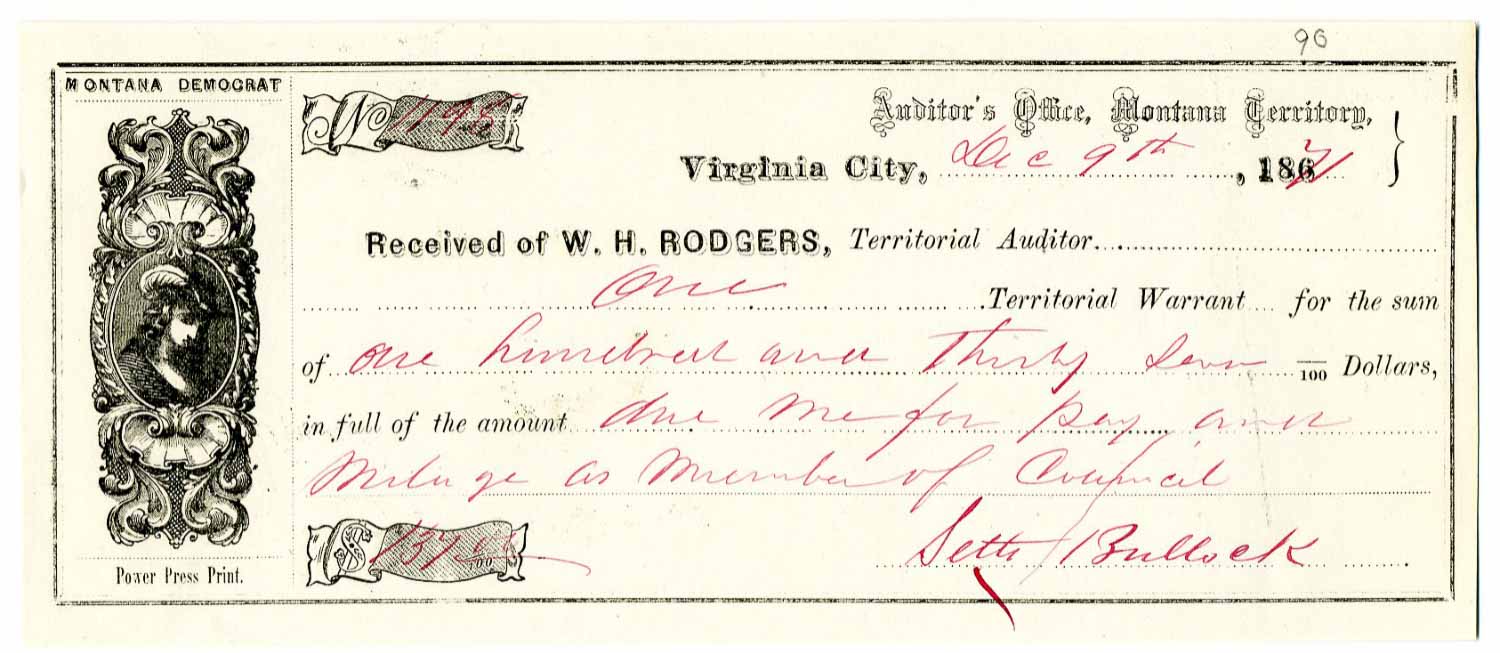 90
MONTANA DEMOCRAT
No 1195
Auditor's Office, Montana Territory,
Virginia City, Dec 9th, 1871
Received of W. H. RODGERS, Territorial Auditor
One Territorial Warrant for the sum
of one hundred and Thirty Seven /100 Dollars,
in full of the amount due me for pay and
Milage as Member of Council
$137.00
Seth Bullock
Power Press Print.